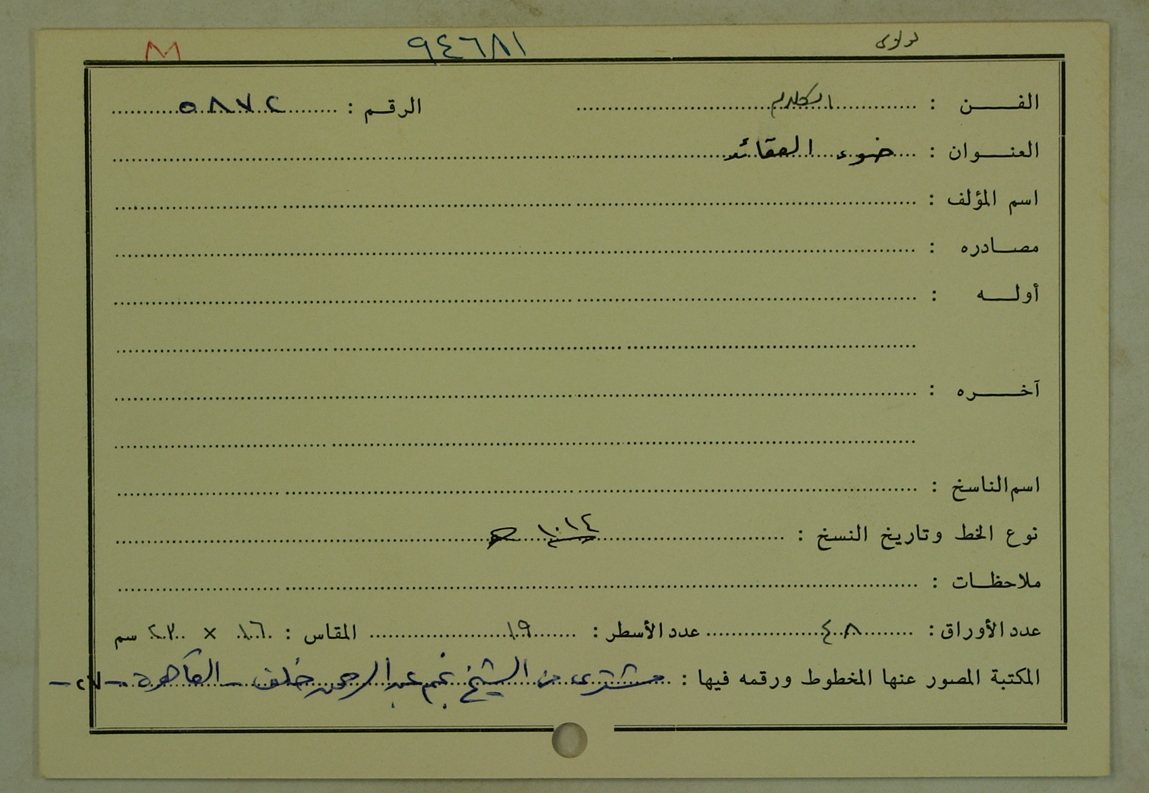 ٩٤٦٨١
الفـــن : الكلام الرقم : ٥٨٧٢
العنـــوان : ضوء العقائد
اسم المؤلف :
مصـــادره :
أولـــه :
آخـــره :
اسم الناسخ :
نوع الخط وتاريخ النسخ : ١٠١٤ هـ
ملاحظـات :
عدد الأوراق : ٤٨ عدد الأسطر : ١٩ المقاس : ١٦ × ٢٢ سم
المكتبة المصور عنها المخطوط ورقمه فيها : مشترى من الشيخ نجم عبد الرحمن خلف - القاهرة - ٢٧ -